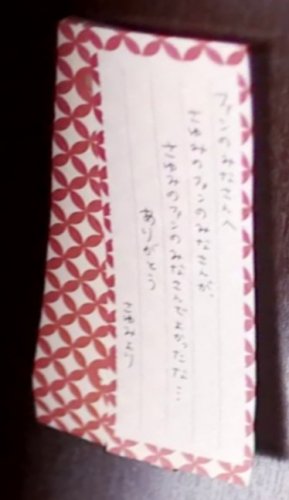 ファンのみなさんへ
さゆみのファンのみなさんが、
さゆみのファンのみなさんでよかったな…
ありがとう
さゆみより